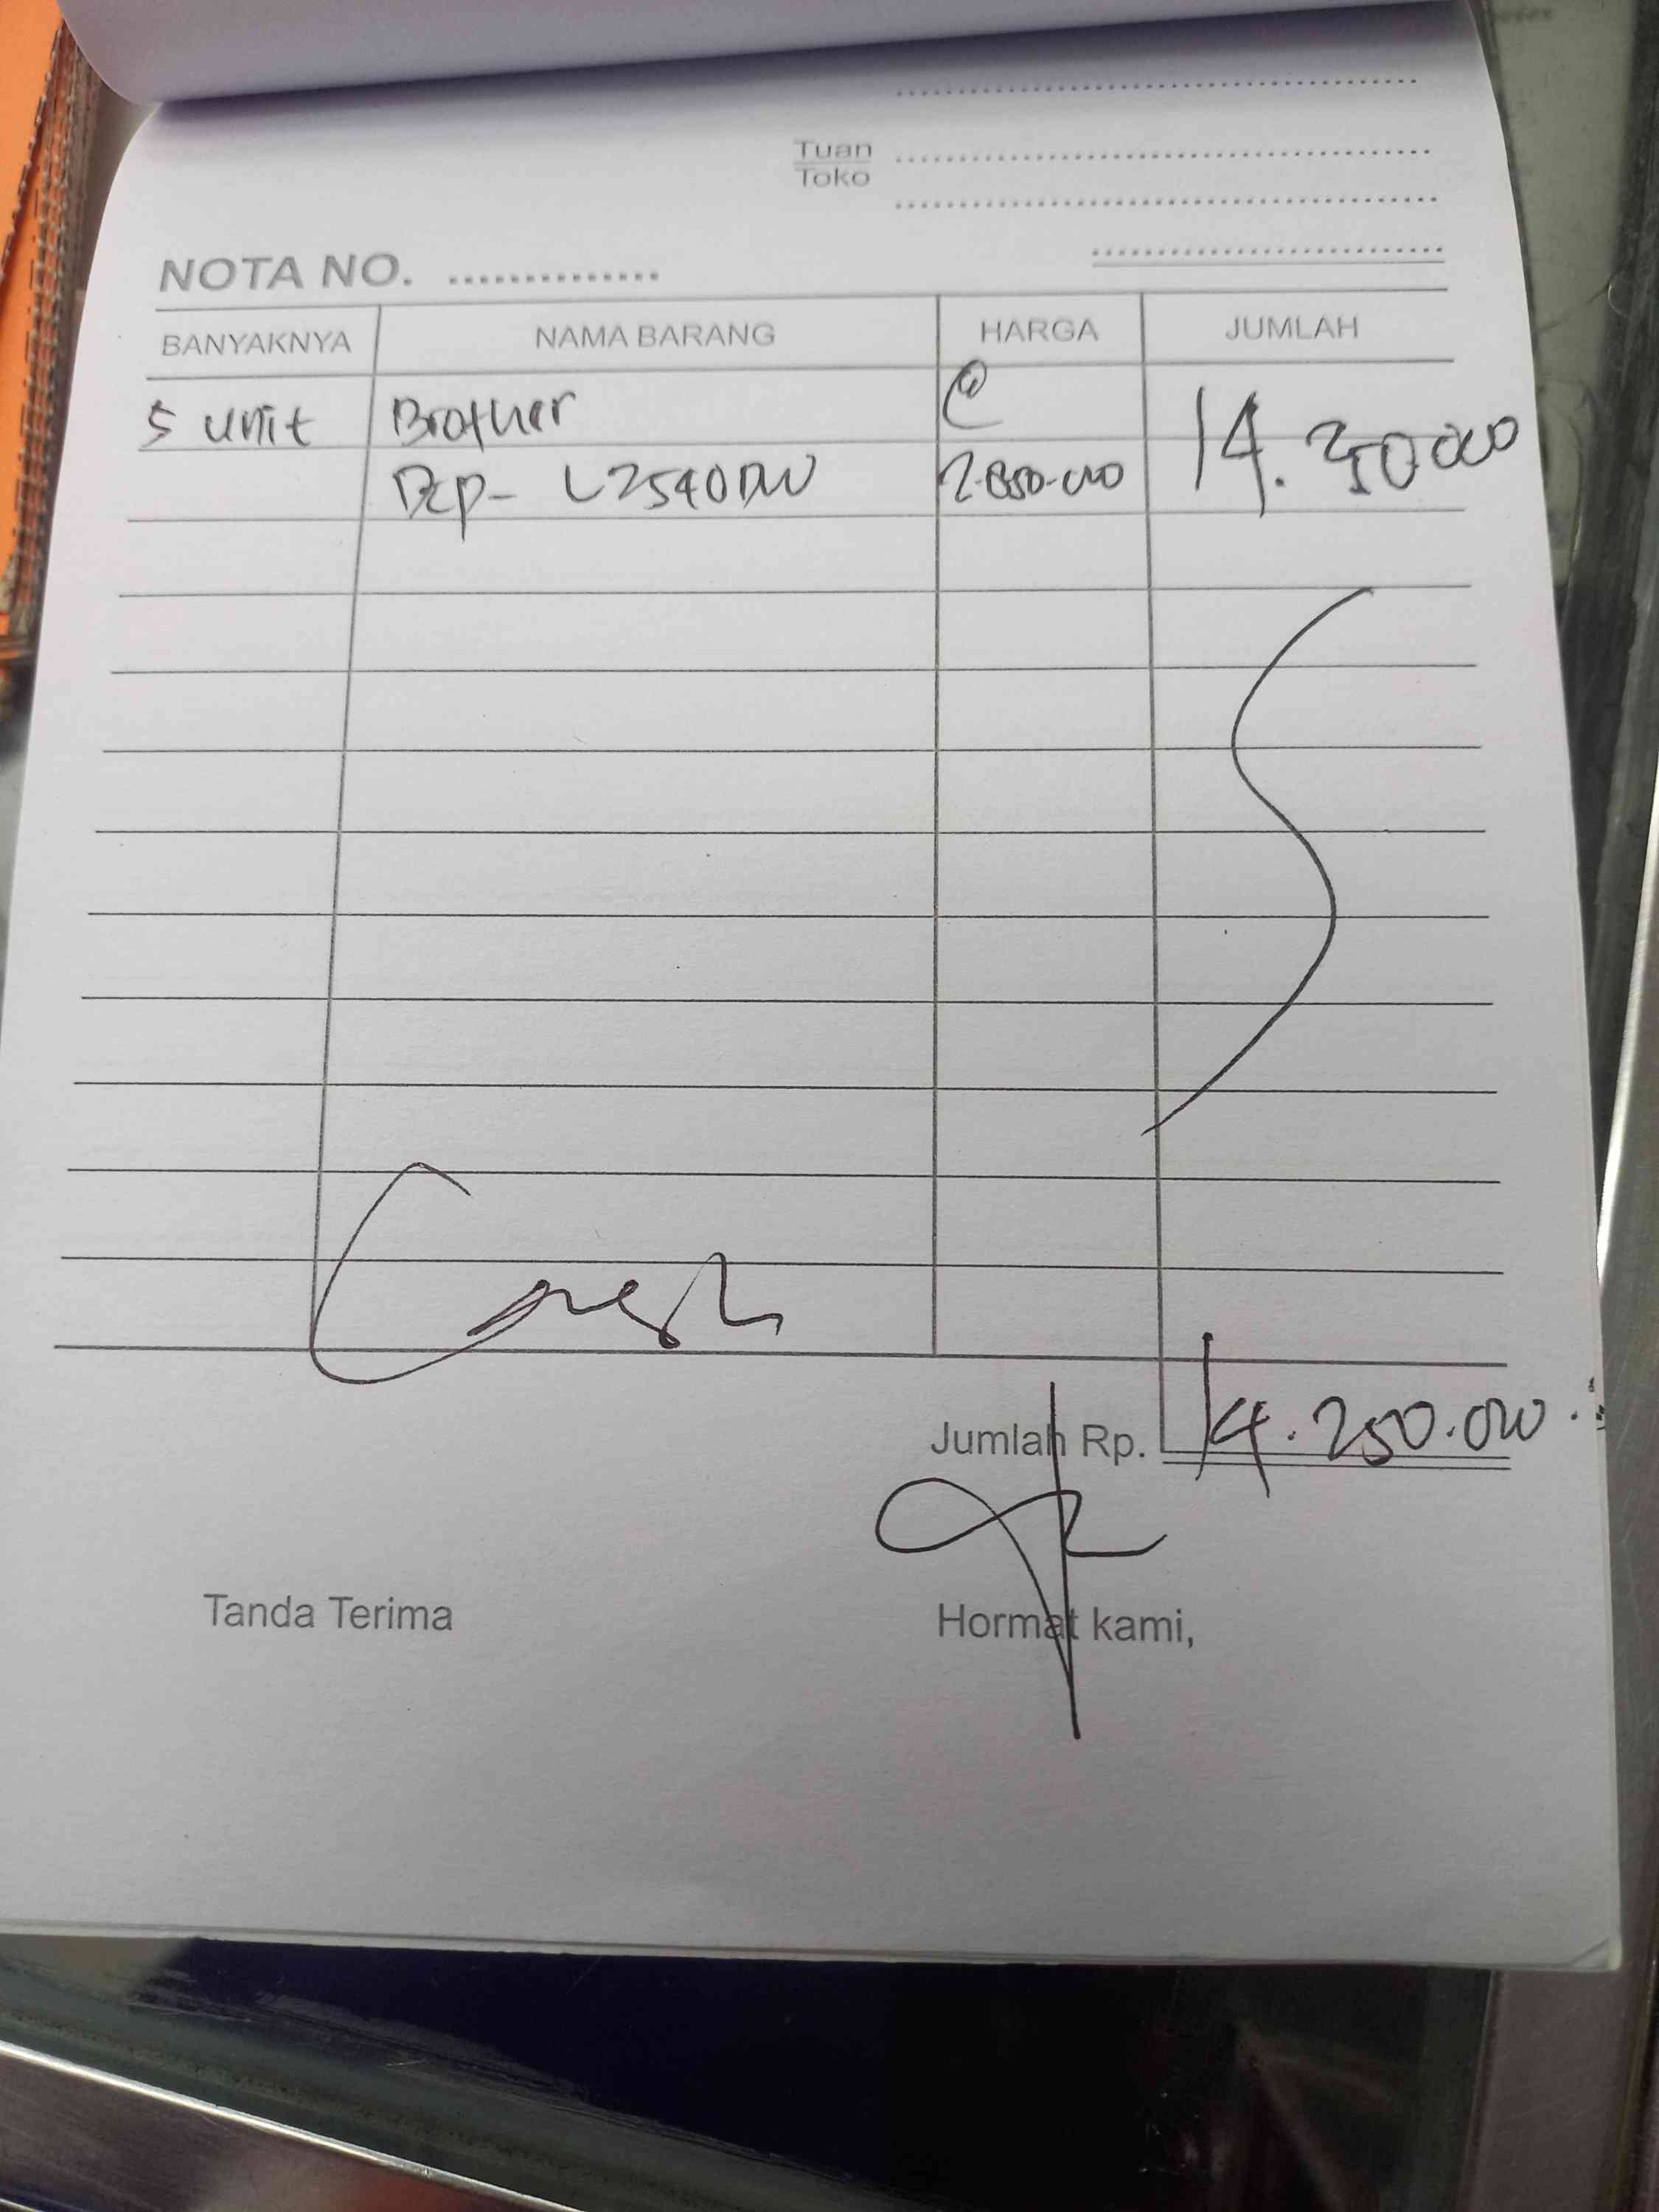 Tuan
Toko
NOTA NO.
BANYAKNYA NAMA BARANG HARGA JUMLAH
5 unit Brother @ 14.250000
Dcp- L2540DW 2.850.000
Cash
Jumlah Rp. 14.250.000
Tanda Terima Hormat kami,